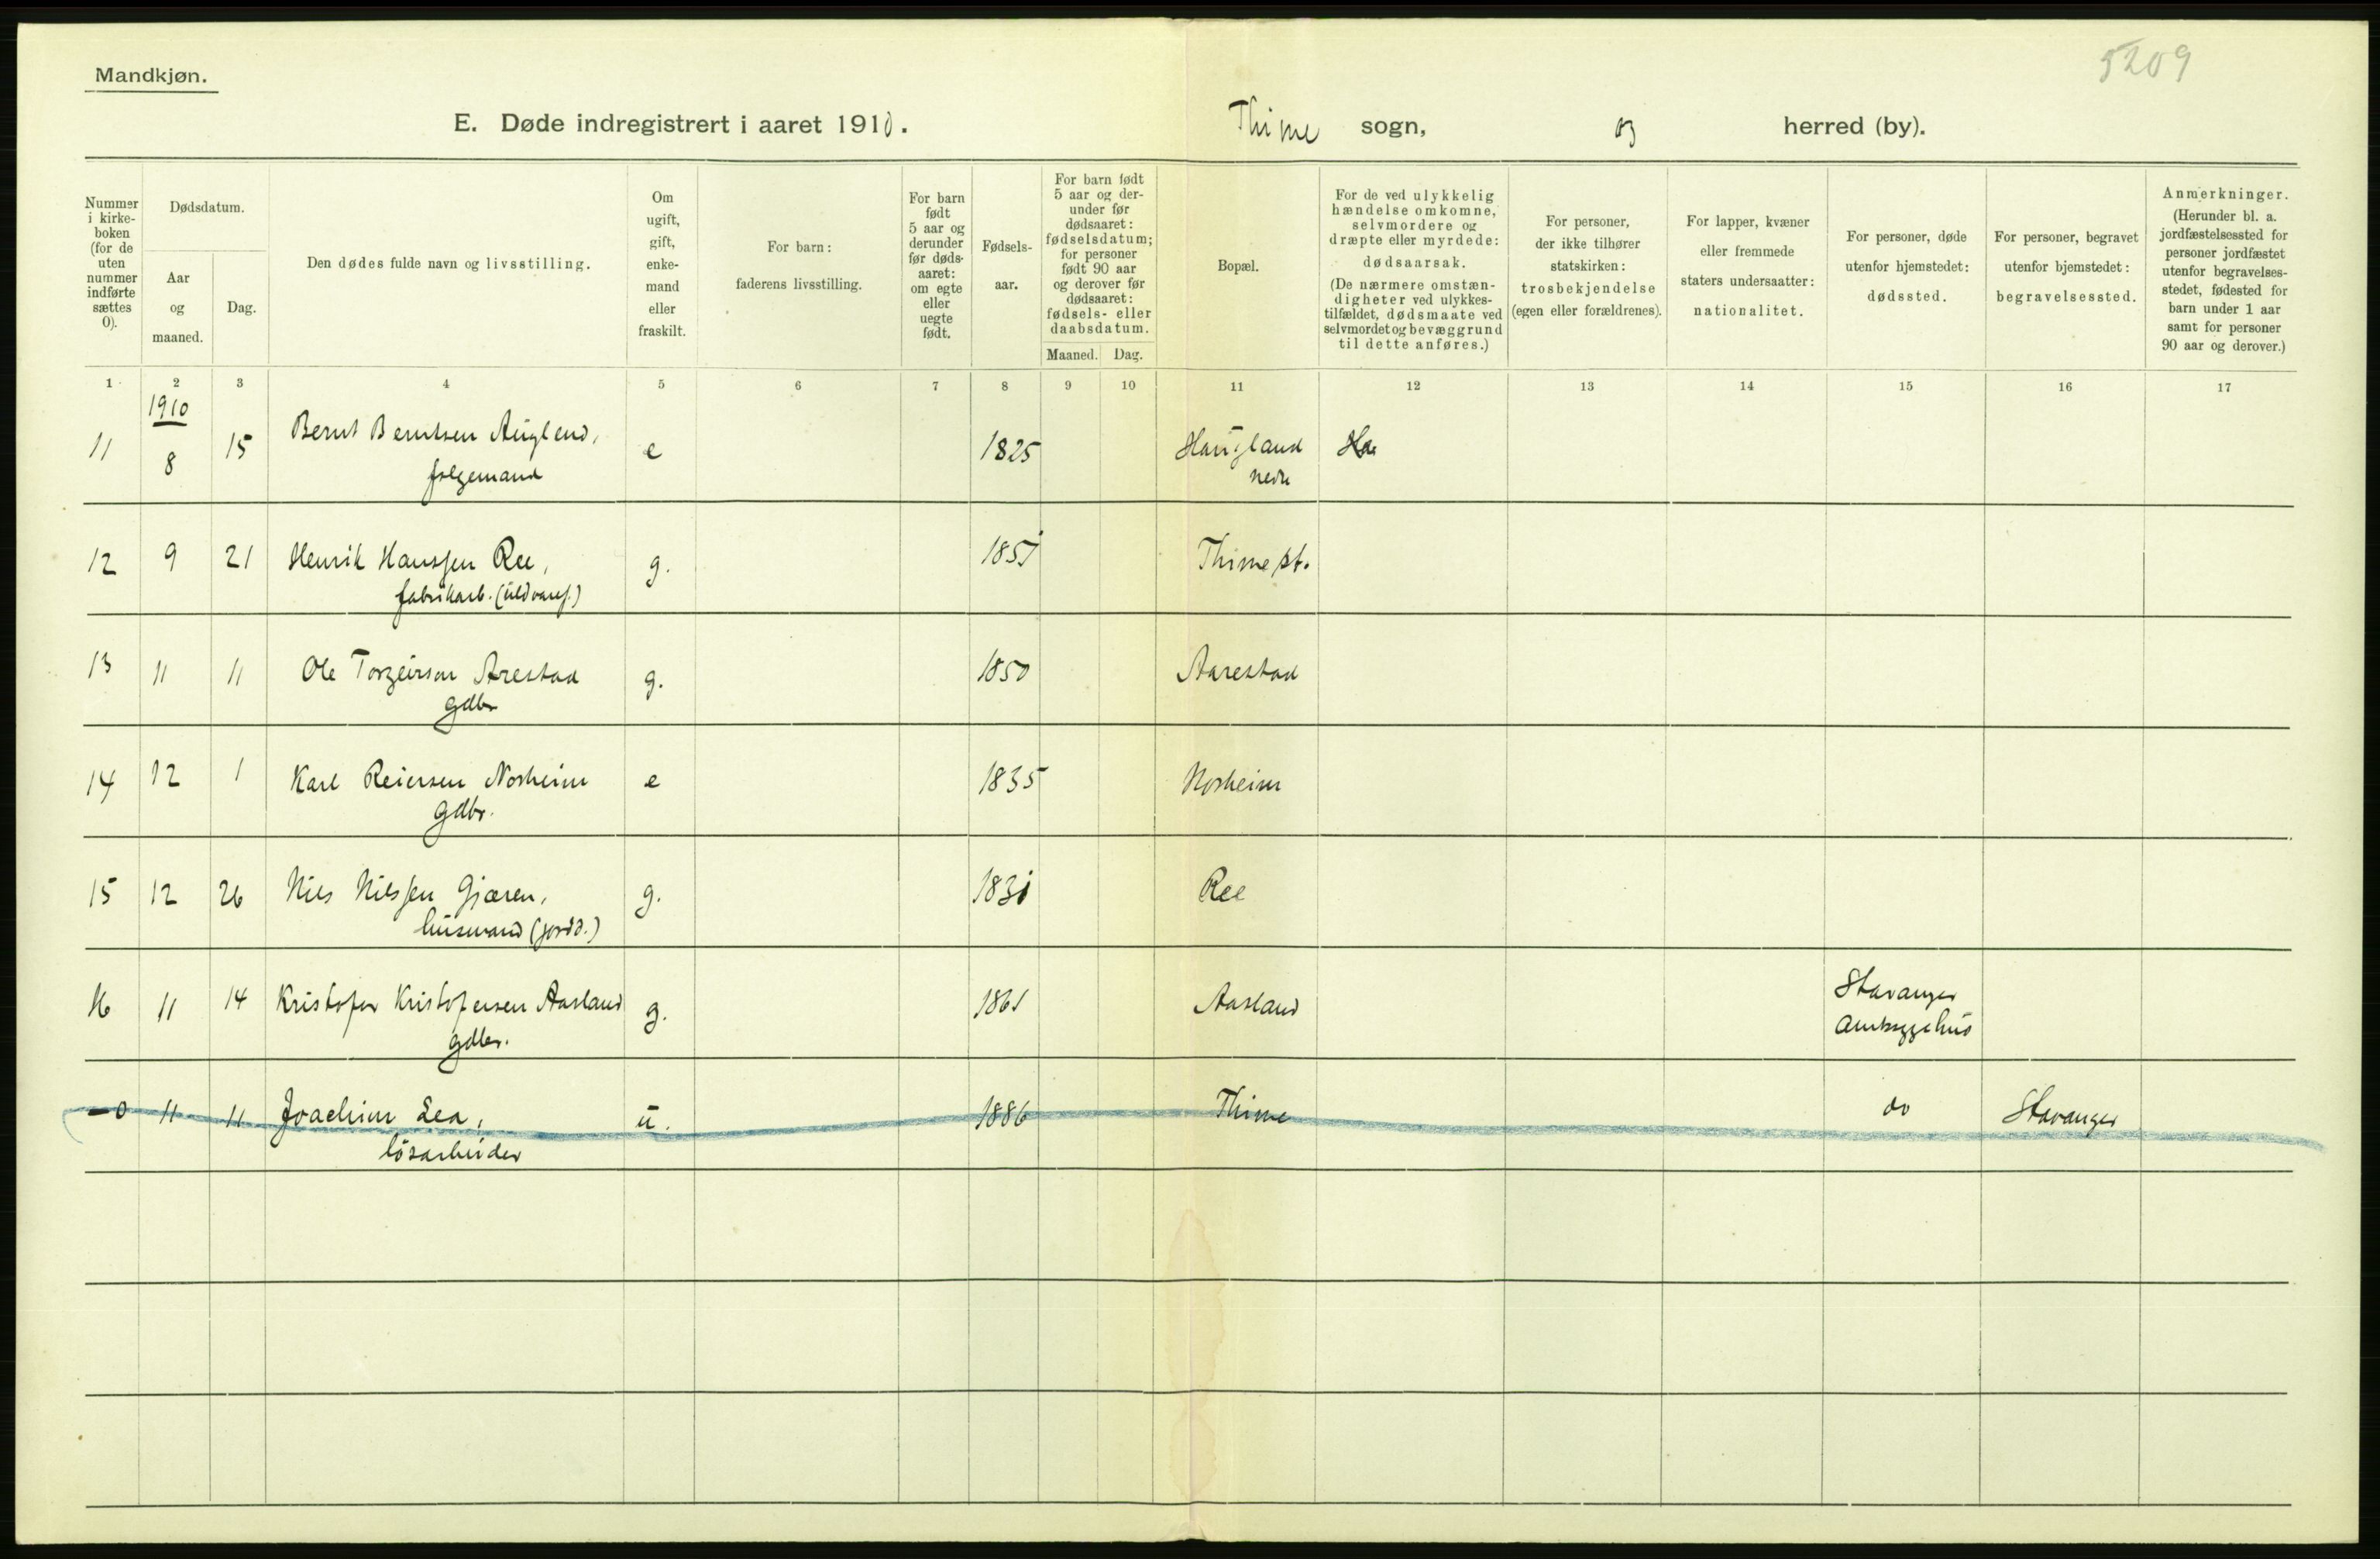 5209
Mandkjøn.
E. Døde indregistrert i aaret 1910. Thime sogn, og herred (by).
Nummer i kirke-boken (for de uten nummer indførte sættes 0).
Dødsdatum.
Aar og maaned.
Dag.
Den dødes fulde navn og livsstilling.
Om ugift, gift, enke-mand eller fraskilt.
For barn: faderens livsstilling.
For barn født 5 aar og derunder før døds-aaret: om egte eller uegte født.
Fødsels-aar.
For barn født 5 aar og der-under før dødsaaret: fødselsdatum; for personer født 90 aar og derover før dødsaaret: fødsels- eller daabsdatum.
Maaned. Dag.
Bopæl.
For de ved ulykkelig hændelse omkomne, selvmordere og dræpte eller myrdede: dødsaarsak.
(De nærmere omstæn-digheter ved ulykkes-tilfældet, dødsmaate ved selvmordet og bevæggrund til dette anføres.)
For personer, der ikke tilhører statskirken: trosbekjendelse (egen eller forældrenes).
For lapper, kvæner eller fremmede staters undersaatter: nationalitet.
For personer, døde utenfor hjemstedet: dødssted.
For personer, begravet utenfor hjemstedet: begravelsessted.
Anmerkninger.
(Herunder bl. a. jordfæstelsessted for personer jordfæstet utenfor begravelses-stedet, fødested for barn under 1 aar samt for personer 90 aar og derover.)
1 2 3 4 5 6 7 8 9 10 11 12 13 14 15 16 17
1910
11 8 15 Bernt Berntsen Auglend, e 1825 Haugland
folgemand nedre
12 9 21 Henrik Hanssen Ree, g. 1851 Thime st.
fabrikarb. (uldvaref.)
13 11 11 Ole Torgeirson Arestad g. 1850 Aarestad
gdbr
14 12 1 Karl Reiersen Norheim e 1835 Norheim
gdbr.
15 12 26 Nils Nilssen Gjæren, g. Ree
husmand (jordd.)
16 11 14 Kristofer Kristofersen Aasland g. 1861 Aasland Stavanger
gdbr. Amtssygehus
0 11 11 Joachim Lea, u. 1886 Thime do Stavanger
løsarbeider